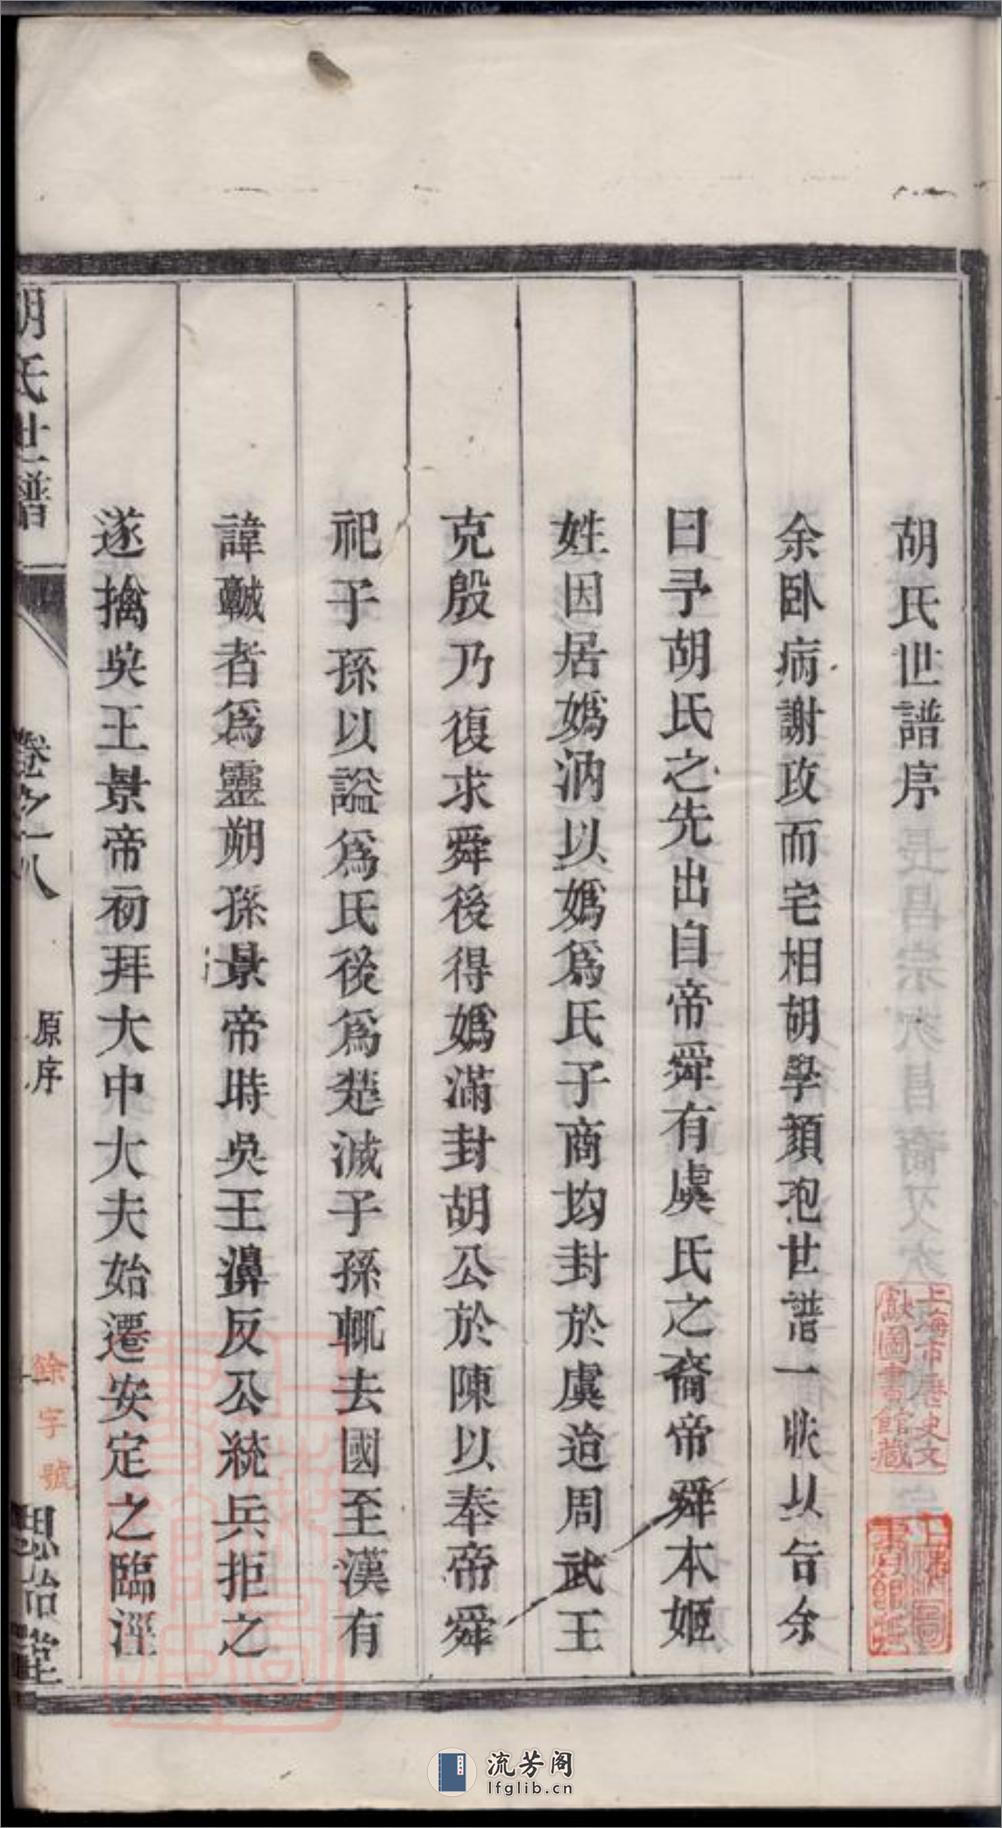 胡氏世譜序
余卧病謝政而宅相胡學顏抱世譜一帙以告余
曰予胡氏之先出自帝舜有虞氏之裔帝舜本姬
姓因居嬀汭以嬀爲氏子商均封於虞迨周武王
克殷乃復求舜後得嬀滿封胡公於陳以奉帝舜
祀子孫以謚爲氏後爲楚滅子孫輒去國至漢有
諱者爲靈朔孫景帝時吳王濞反公統兵拒之
遂擒吳王景帝初拜大中大夫始遷安定之臨涇
胡氏世譜
卷之八
原序
餘字號
思詒堂
上海市歷史文獻圖書館藏
流芳阁
lfglib.cn